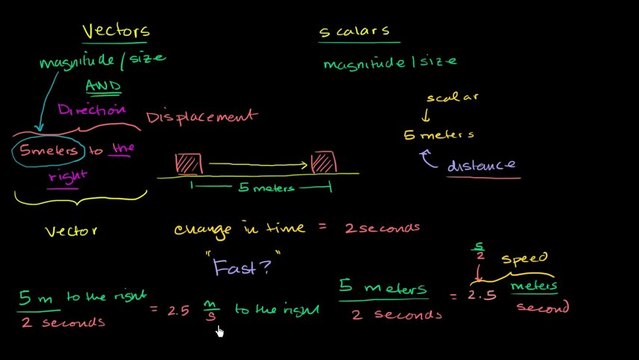 Vectors
magnitude/size
AND
Direction
Displacement
5 meters to the
right
Vector
scalars
magnitude/size
scalar
5 meters
distance
5 meters
change in time = 2 seconds
"Fast?"
5 m to the right
2 seconds
= 2.5 m/s to the right
5 meters
2 seconds
= 2.5 meters
second
5
2
speed